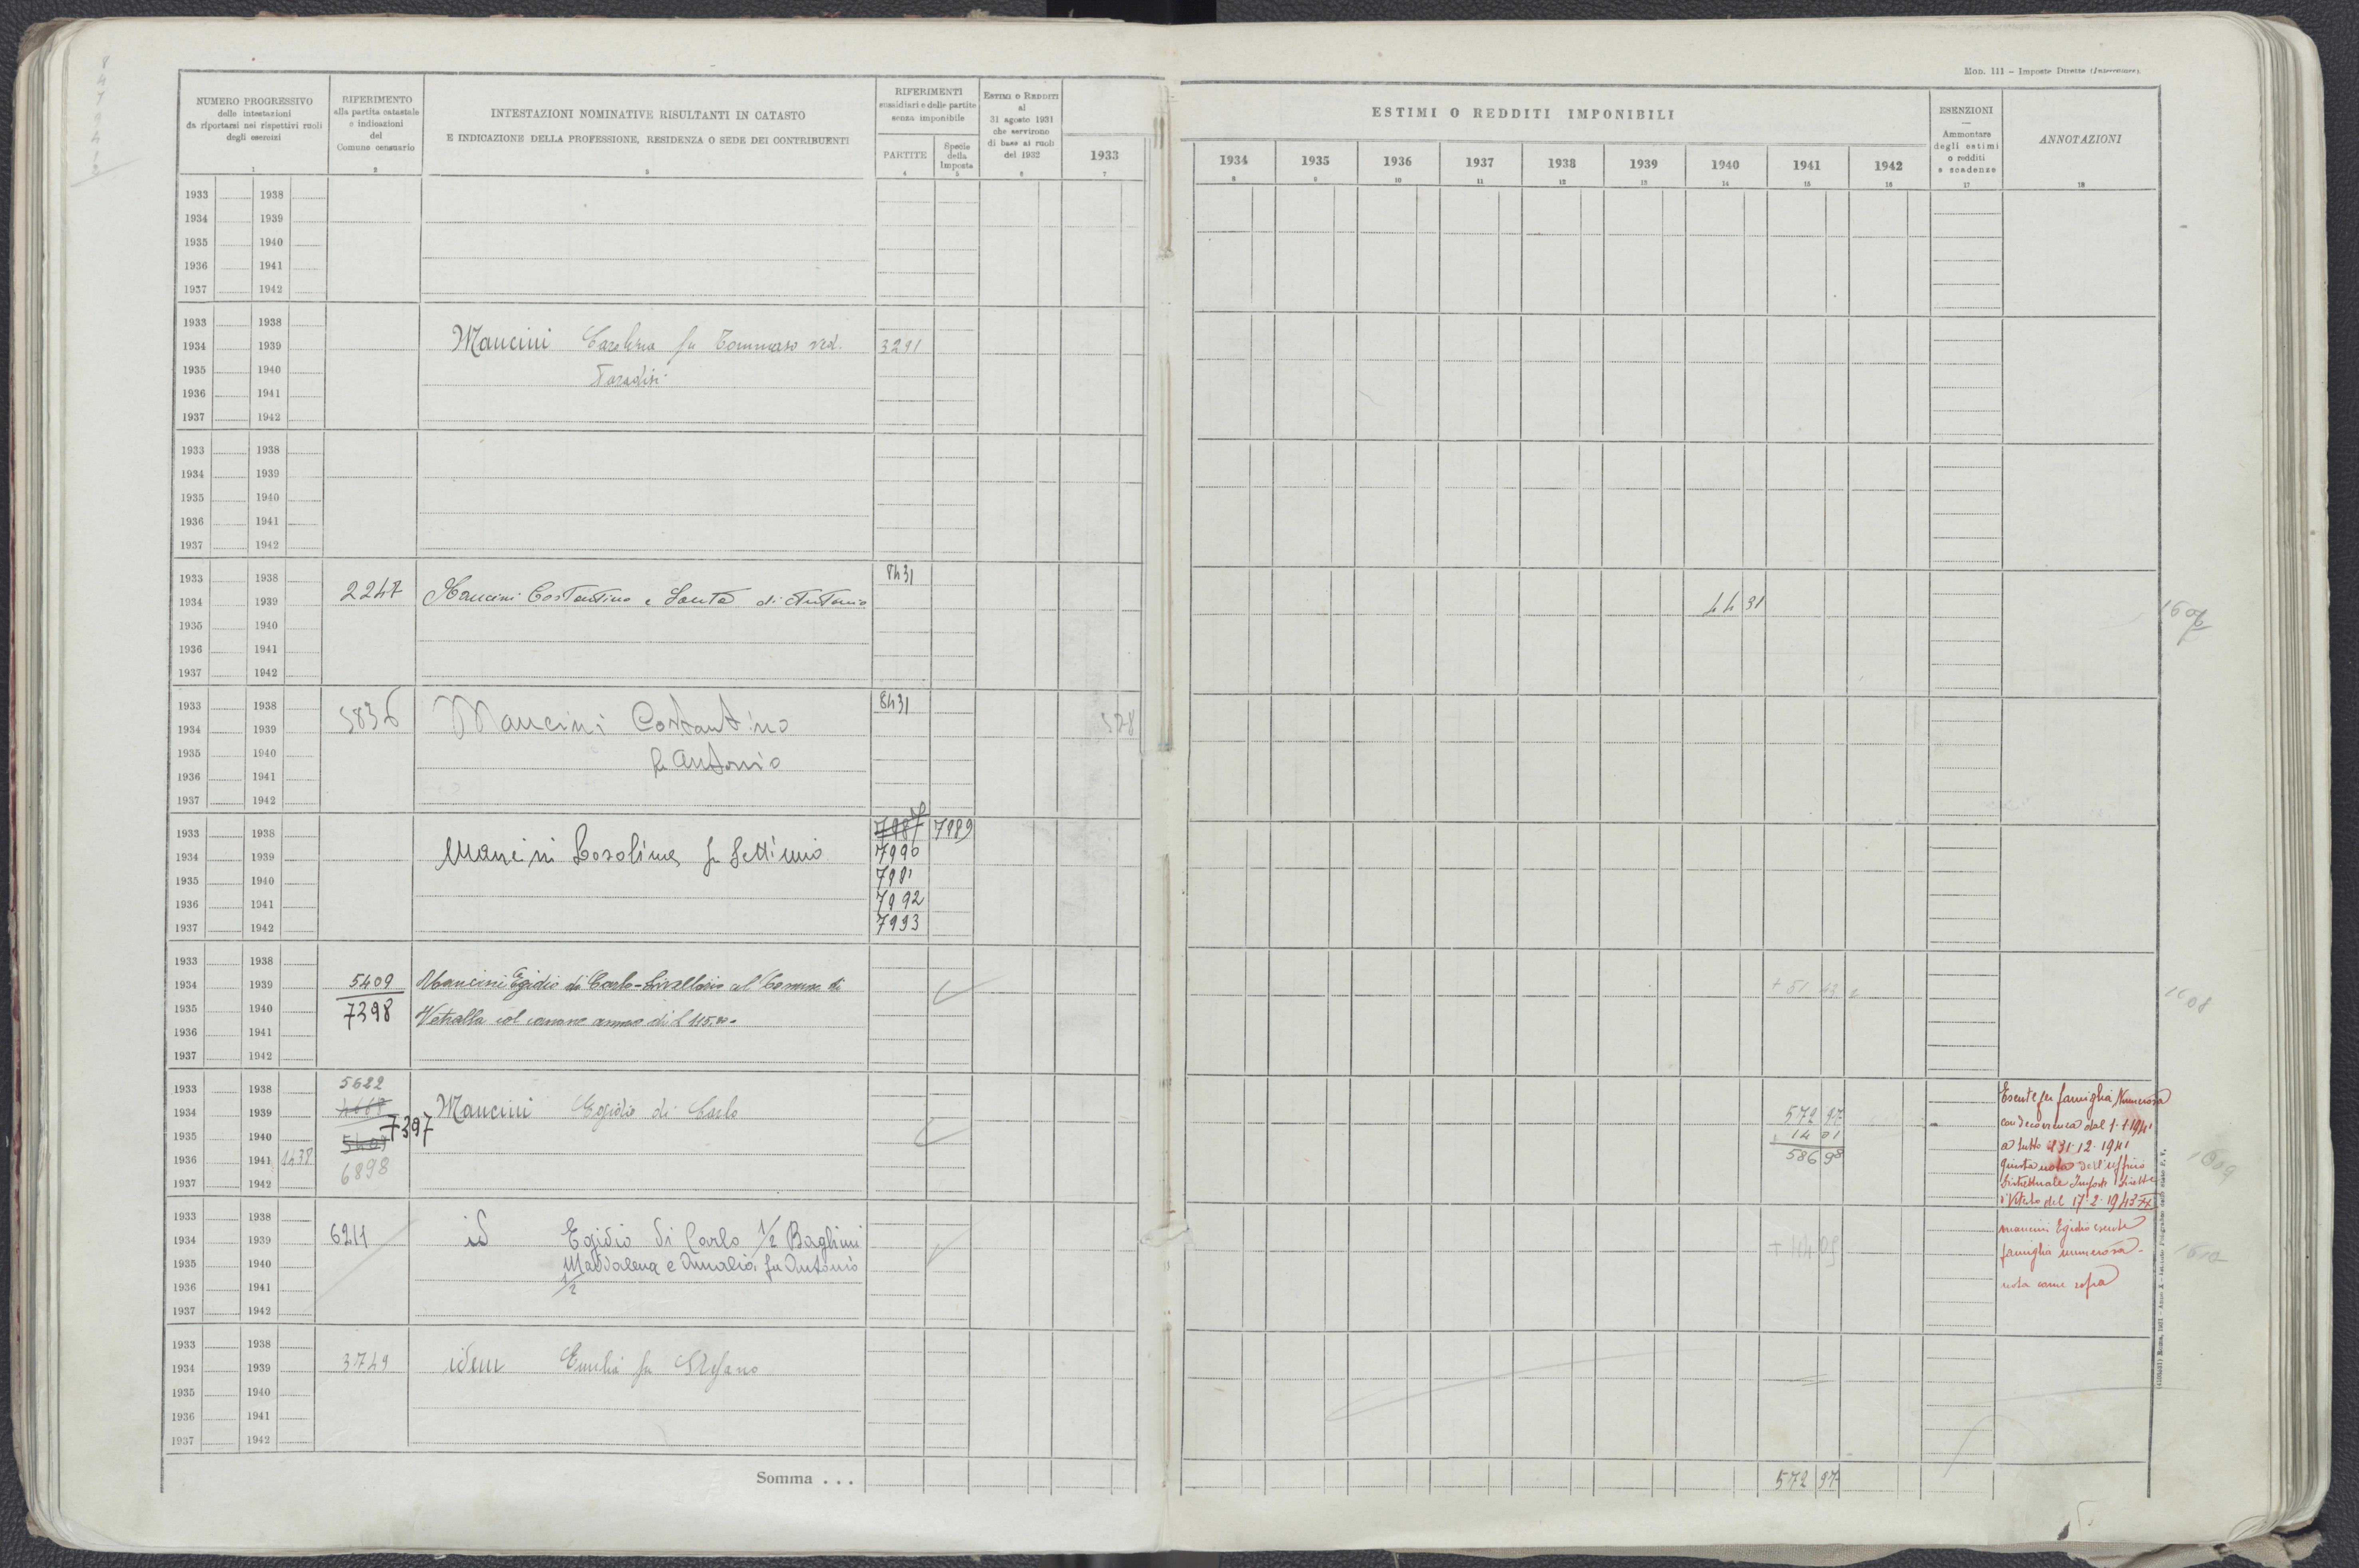 Mod. 111 – Imposte Dirette (Intercalare).
NUMERO PROGRESSIVO
delle intestazioni
da riportarsi nei rispettivi ruoli
degli esercizi
1
RIFERIMENTO
alla partita catastale
e indicazioni
del
Comune censuario
2
INTESTAZIONI NOMINATIVE RISULTANTI IN CATASTO
E INDICAZIONE DELLA PROFESSIONE, RESIDENZA O SEDE DEI CONTRIBUENTI
3
RIFERIMENTI
sussidiari e delle partite
senza imponibile
PARTITE
4
Specie
della
Imposta
5
Estimi o Redditi
al
31 agosto 1931
che servirono
di base ai ruoli
del 1932
6
1933
7
ESTIMI O REDDITI IMPONIBILI
1934 1935 1936 1937 1938 1939 1940 1941 1942
8 9 10 11 12 13 14 15 16
ESENZIONI
—
Ammontare
degli estimi
o redditi
e scadenze
17
ANNOTAZIONI
18
1933 1938
1934 1939
1935 1940
1936 1941
1937 1942
1933 1938
1934 1939 Mancini Carolina fu Tommaso ved. 3291
1935 1940 Paradisi
1936 1941
1937 1942
1933 1938
1934 1939
1935 1940
1936 1941
1937 1942
1933 1938 8431
1934 1939 2247 Mancini Costantino e Santa di Antonio 44 31
1935 1940
1936 1941
1937 1942
1933 1938 8431
1934 1939 5836 Mancini Costantino 578
1935 1940 fu Antonio
1936 1941
1937 1942
1933 1938 7987 7989
1934 1939 Mancini Rosolina fu Settimio 7990
1935 1940 7991
1936 1941 7992
1937 1942 7993
1933 1938
1934 1939 5409 Mancini Egidio di Carlo - Livellario al Comune di + 51 43
1935 1940 7398 Vetralla col canone annuo di L 115
1936 1941
1937 1942
1608
1933 1938 5622
1934 1939 Mancini Egidio di Carlo 572 97
1935 1940 5409 7397 14 01
1936 1941 1438 586 98
1937 1942 6898
Esente per famiglia Numerosa
con decorrenza dal 1-1-1941
a tutto il 31-12-1941
giusta nota dell'ufficio
Distrettuale Imposte Dirette
di Viterbo del 17-2-1943 XXI
1609
1933 1938
1934 1939 6211 id Egidio di Carlo 1/2 Baghini
1935 1940 Maddalena e Amalia fu Antonio
1936 1941 1/2
1937 1942
Mancini Egidio esente
famiglia numerosa -
nota come sopra
1610
1933 1938
1934 1939 3749 idem Emilia fu Stefano
1935 1940
1936 1941
1937 1942
Somma . . . 572 97